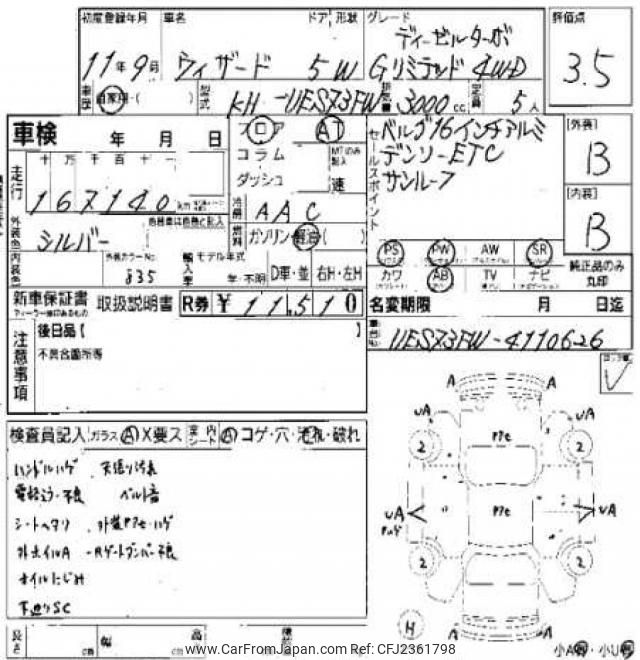 初度登録年月 車名 ドア 形状 グレード 評価点
ディーゼルターボ
11年9月 ウィザード 5W Gリミテッド 4WD 3.5
車歴 自家用・( ) 型式 KH-UES73FW 排気量 3000cc 定員 5人
車検 年 月 日 フロア AT セールスポイント ベルグ16インチアルミ [外装]
コラム MTのみ記入 デンソーETC B
ダッシュ 速 サンルーフ
走行 十万千百十一
167140 冷房 AAC [内装]
外装色 シルバー 燃料 ガソリン・軽油( ) B
PS PW AW SR 純正品のみ丸印
内装色 外装カラーNo. 835 輸入車 モデル年式 年・不明 D車・並 右H・左H カワ AB TV ナビ
新車保証書 取扱説明書 R券 ¥11,510 名変期限 月 日迄
後日品【 】 車台No. UES73FW-4110626
注意事項 不具合箇所等
A A
UA UA
2 2
PTe
検査員記入 ガラス A X要ス 内 A コゲ・穴・汚れ・破れ
ハンドルハゲ 天張り汚れ
電格ミラー不良 ベルト音 UA PTe UA
シートヘタリ 外装PTe・ハゲ
外ホイルA -Rゲートダンパー不良 2 2
オイルにじみ
下廻りSC
H A A
長さ cm 幅 cm 高 cm
小A・小U
www.CarFromJapan.com Ref: CFJ2361798